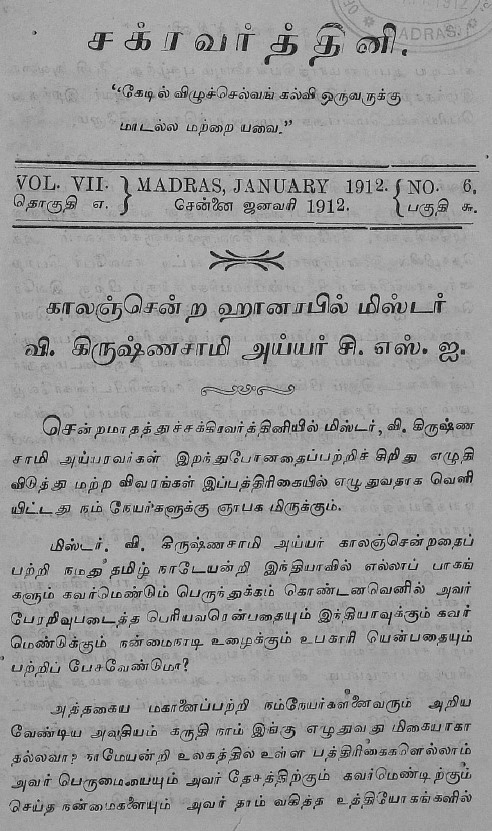 1912
MADRAS.
சக்ரவர்த்தினி.
“கேடில் விழுச்செல்வங் கல்வி ஒருவருக்கு
மாடல்ல மற்றை யவை.”
VOL. VII. } MADRAS, JANUARY 1912. { NO. 6.
தொகுதி எ. } சென்னை ஜனவரி 1912. { பகுதி சு.
காலஞ்சென்ற ஹானரபில் மிஸ்டர்
வி. கிருஷ்ணசாமி அய்யர் சி. எஸ். ஐ.
சென்றமாதத்துச்சக்கிரவர்த்தினியில் மிஸ்டர், வி. கிருஷ்ண
சாமி அய்யரவர்கள் இறந்துபோனதைப்பற்றிச் சிறிது எழுதி
விடுத்து மற்ற விவரங்கள் இப்பத்திரிகையில் எழுதுவதாக வெளி
யிட்டது நம் நேயர்களுக்கு ஞாபக மிருக்கும்.
மிஸ்டர். வி. கிருஷ்ணசாமி அய்யர் காலஞ்சென்றதைப்
பற்றி நமது தமிழ் நாடேயன்றி இந்தியாவில் எல்லாப் பாகங்
களும் கவர்மெண்டும் பெருந்துக்கம் கொண்டனவெனில் அவர்
பேரறிவுபடைத்த பெரியவரென்பதையும் இந்தியாவுக்கும் கவர்
மெண்டுக்கும் நன்மைநாடி உழைக்கும் உபகாரி யென்பதையும்
பற்றிப் பேசவேண்டுமா?
அத்தகைய மகானைப்பற்றி நம்நேயர்களனைவரும் அறிய
வேண்டிய அவசியம் கருதி நாம் இங்கு எழுதுவது மிகையாகா
தல்லவா? நாமேயன்றி உலகத்தில் உள்ள பத்திரிகைகளெல்லாம்
அவர் பெருமையையும் அவர் தேசத்திற்கும் கவர்மெண்டிற்கும்
செய்த நன்மைகளையும் அவர் தாம் வகித்த உத்தியோகங்களில்